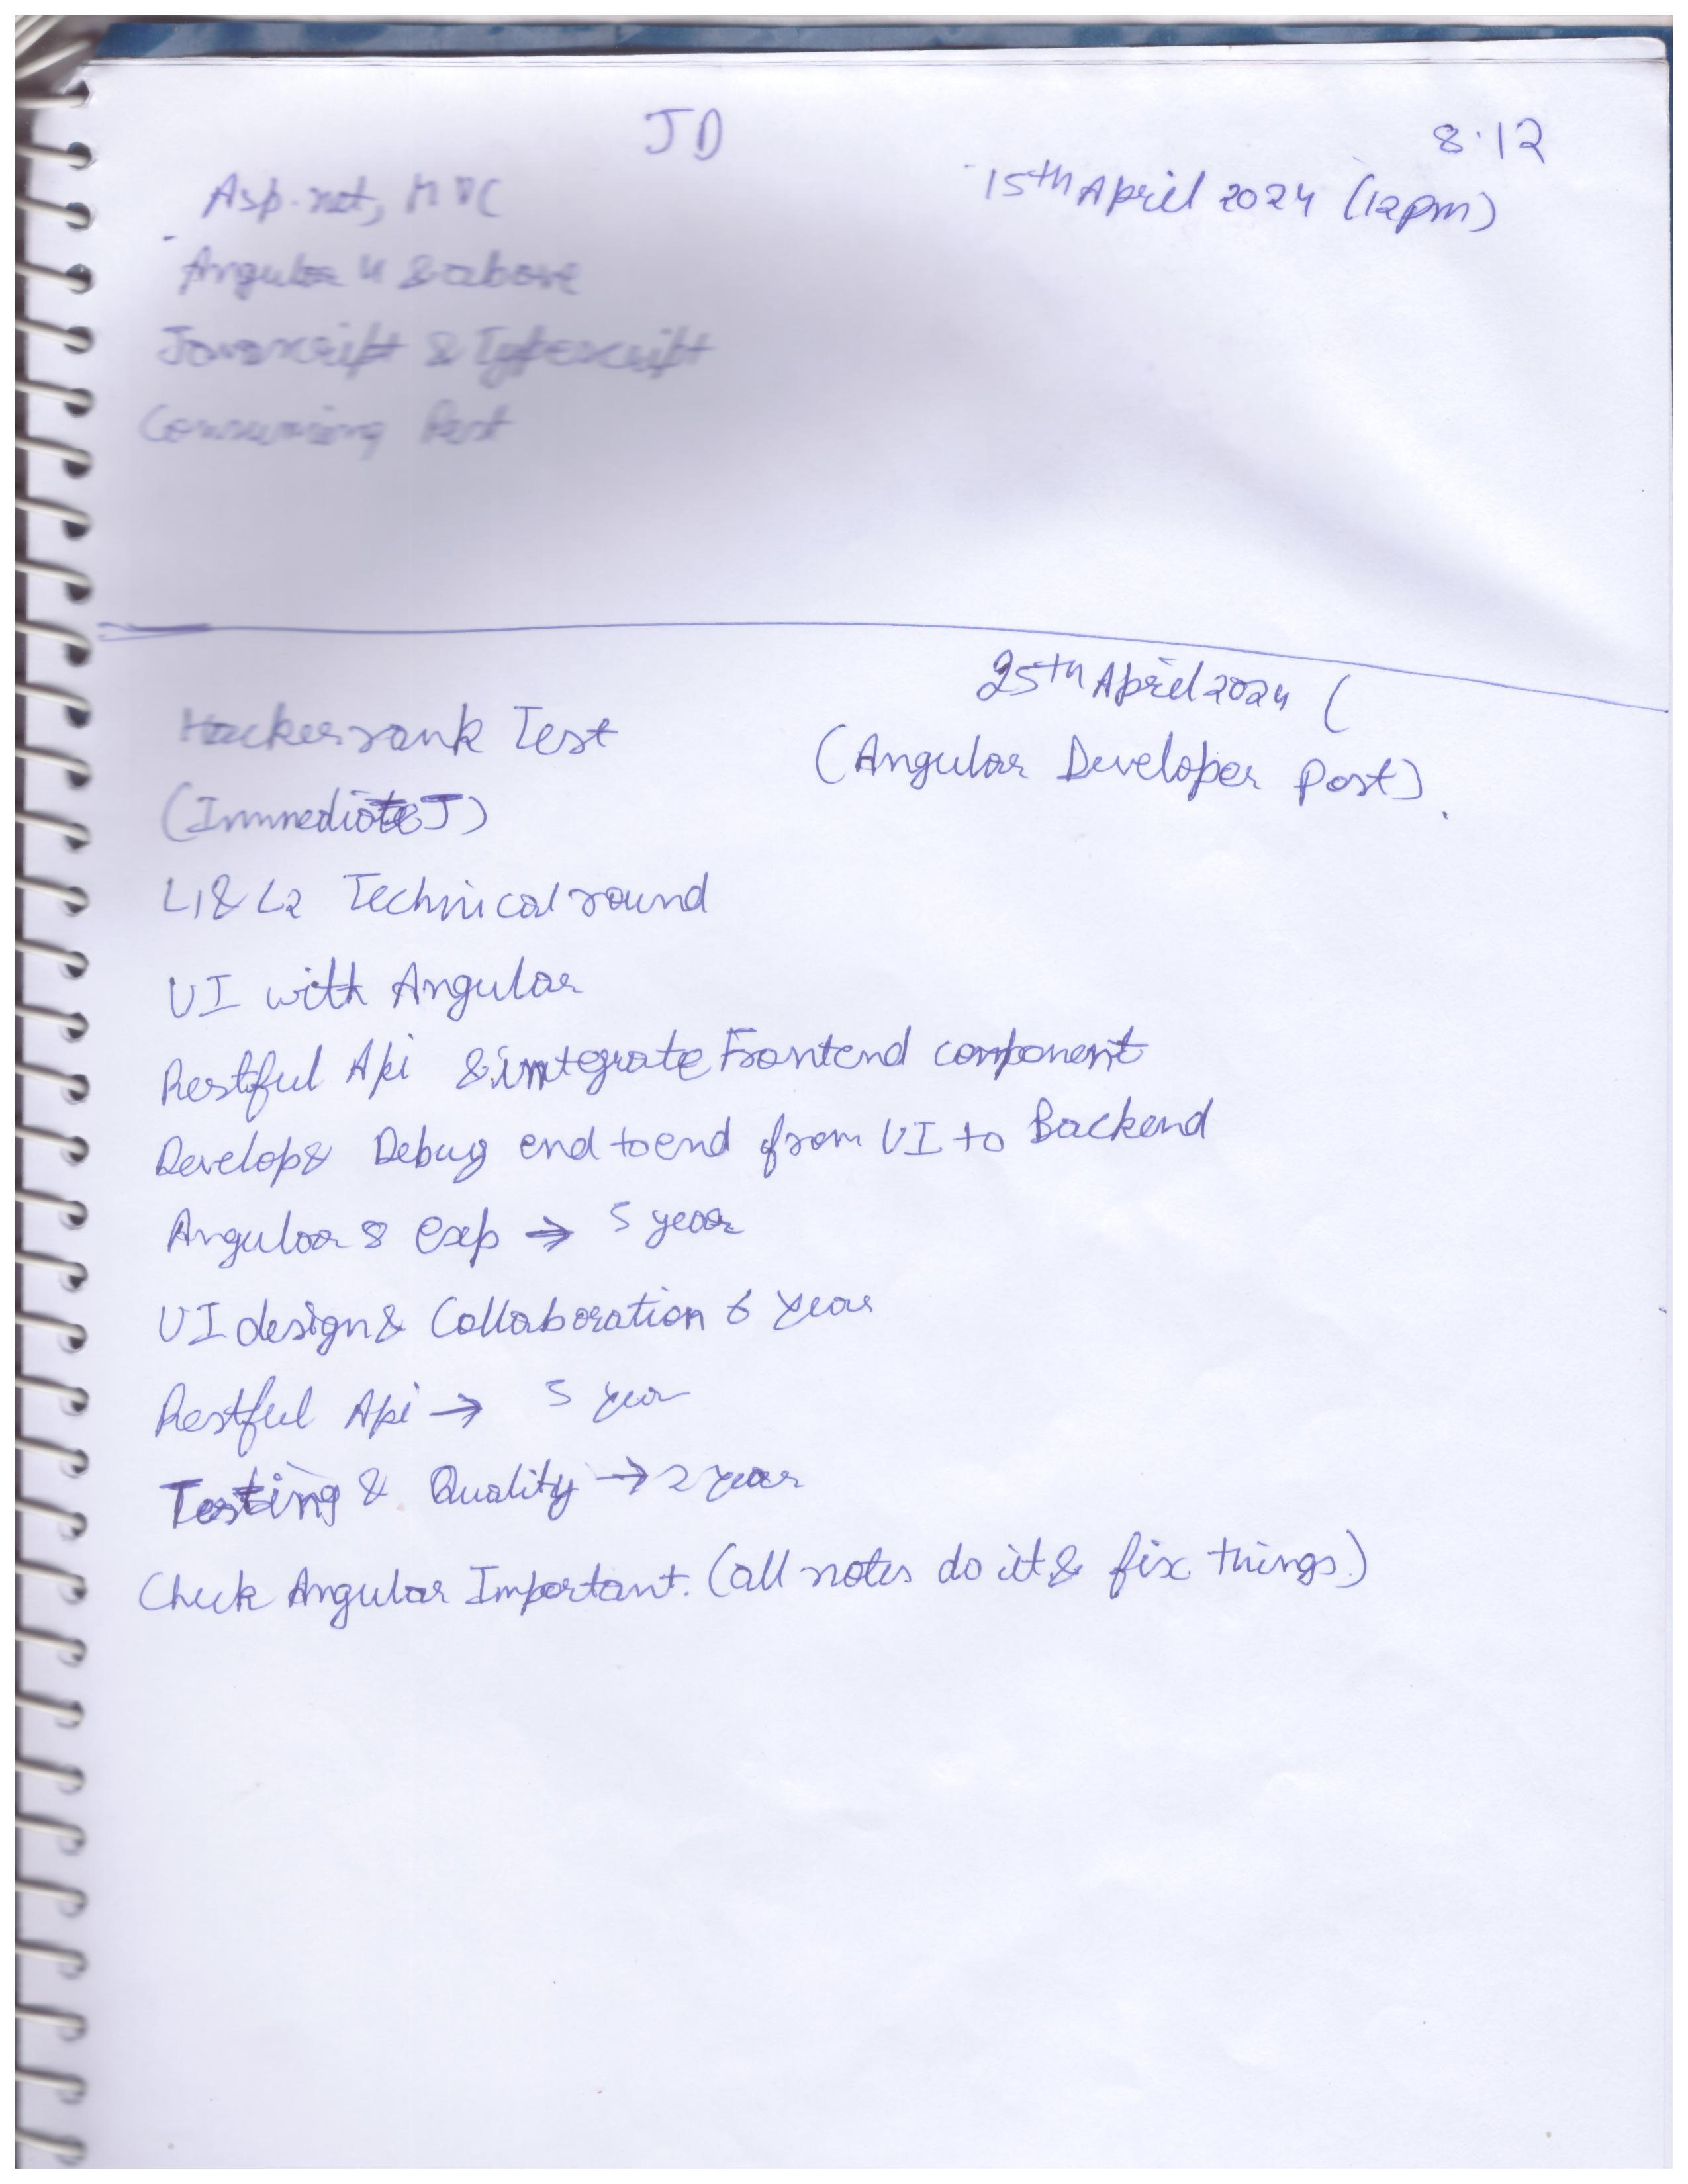 JD
8.12
15th April 2024 (12pm)
Asp.net, MVC
Angular 4 & above
Javascript & Typescript
Consuming Rest
25th April 2024 (
Hackerrank Test
(Angular Developer Post).
(Immediate J)
L1 & L2 Technical round
UI with Angular
Restful Api & integrate Frontend component
Develop & Debug end to end from UI to Backend
Angular 8 exp → 5 year
UI design & Collaboration 6 year
Restful Api → 5 year
Testing & Quality → 2 year
Check Angular Important. (all notes do it & fix things.)